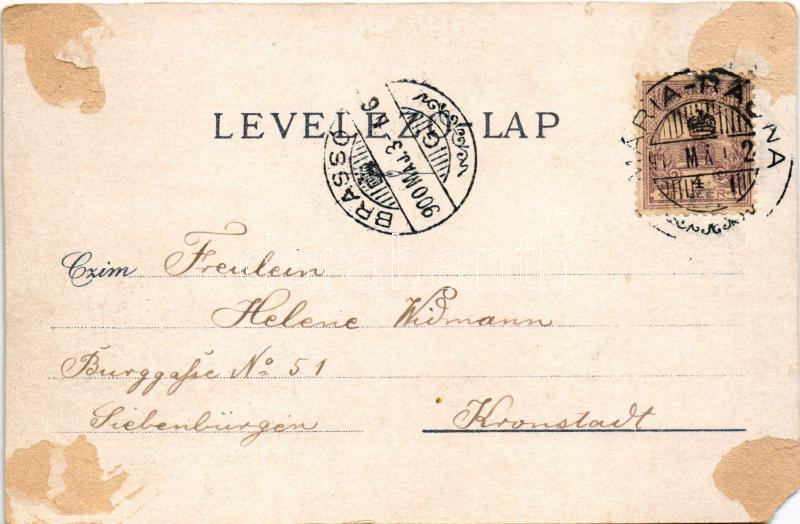 LEVELEZŐ-LAP
BRASSÓ
900 MÁJ. 3. N 6
G
MÁRIA-RADNA
MÁJ 2
Czim Freulein
Helene Widmann
Burggaße No 51
Siebenbürgen Kronstadt